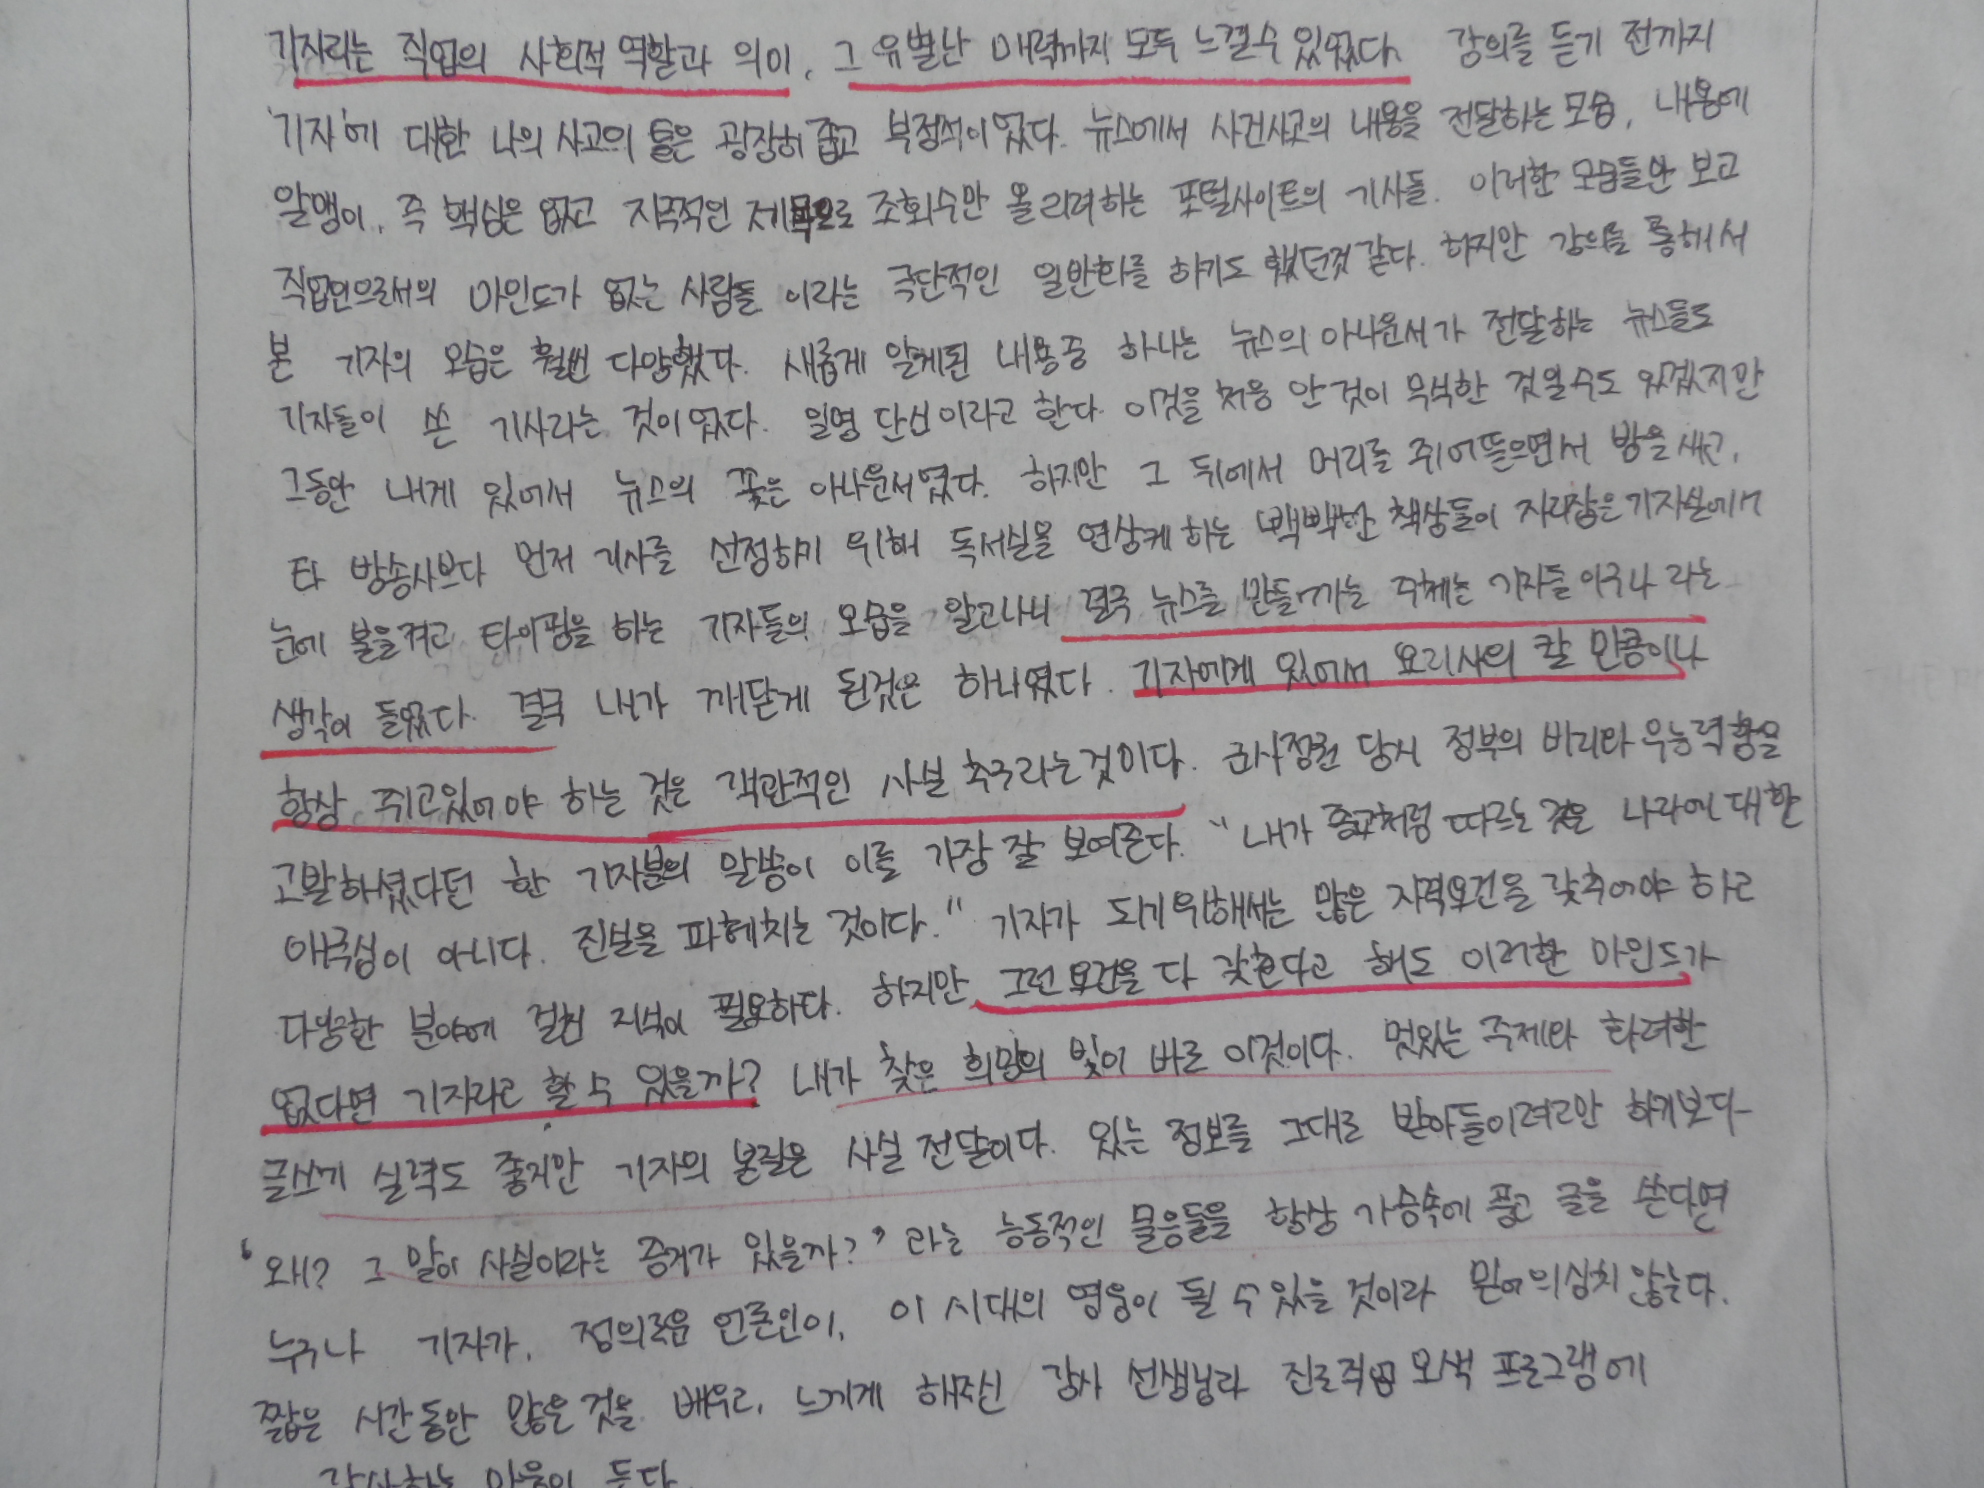 기자라는 직업의 사회적 역할과 의미, 그 유별난 매력까지 모두 느낄수 있었다. 강의를 듣기 전까지
'기자'에 대한 나의 사고의 틀은 굉장히 좁고 부정적이었다. 뉴스에서 사건사고의 내용을 전달하는 모습, 내용에
알맹이, 즉 핵심은 없고 자극적인 제목으로 조회수만 올리려하는 포털사이트의 기사들. 이러한 모습들만 보고
직업인으로서의 마인드가 없는 사람들 이라는 극단적인 일반화를 하기도 했던것 같다. 하지만 강의를 통해서
본 기자의 모습은 훨씬 다양했다. 새롭게 알게된 내용중 하나는 뉴스의 아나운서가 전달하는 뉴스들도
기자들이 쓴 기사라는 것이었다. 일명 단신이라고 한다. 이것을 처음 안 것이 무식한 것일수도 있겠지만
그동안 내게 있어서 뉴스의 꽃은 아나운서였다. 하지만 그 뒤에서 머리를 쥐어뜯으면서 밤을 새고,
타 방송사보다 먼저 기사를 선정하기 위해 독서실을 연상케하는 빽빽한 책상들이 자리잡은 기자실에서
눈에 불을켜고 타이핑을 하는 기자들의 모습을 알고나니 결국 뉴스를 만들어가는 주체는 기자들 이구나 라는
생각이 들었다. 결국 내가 깨닫게 된것은 하나였다. 기자에게 있어서 요리사의 칼 만큼이나
항상 쥐고있어야 하는 것은 객관적인 사실 추구라는것이다. 군사정권 당시 정부의 비리와 무능력함을
고발하셨다던 한 기자분의 말씀이 이를 가장 잘 보여준다. "내가 종교처럼 따르는 것은 나라에 대한
애국심이 아니다. 진실을 파헤치는 것이다." 기자가 되기위해서는 많은 자격요건을 갖추어야 하고
다양한 분야에 걸친 지식이 필요하다. 하지만 그런 요건을 다 갖춘다고 해도 이러한 마인드가
없다면 기자라고 할 수 있을까? 내가 찾은 희망의 빛이 바로 이것이다. 멋있는 주제와 화려한
글쓰기 실력도 좋지만 기자의 본질은 사실 전달이다. 있는 정보를 그대로 받아들이려고만 하기보다
'왜? 그 말이 사실이라는 증거가 있을까?' 라는 능동적인 물음들을 항상 가슴속에 품고 글을 쓴다면
누구나 기자가, 정의로운 언론인이, 이 시대의 영웅이 될 수 있을 것이라 믿어 의심치 않는다.
짧은 시간동안 많은 것을 배우고, 느끼게 해주신 강사 선생님과 진로직업 모색 프로그램에
감사하는 마음이 든다.